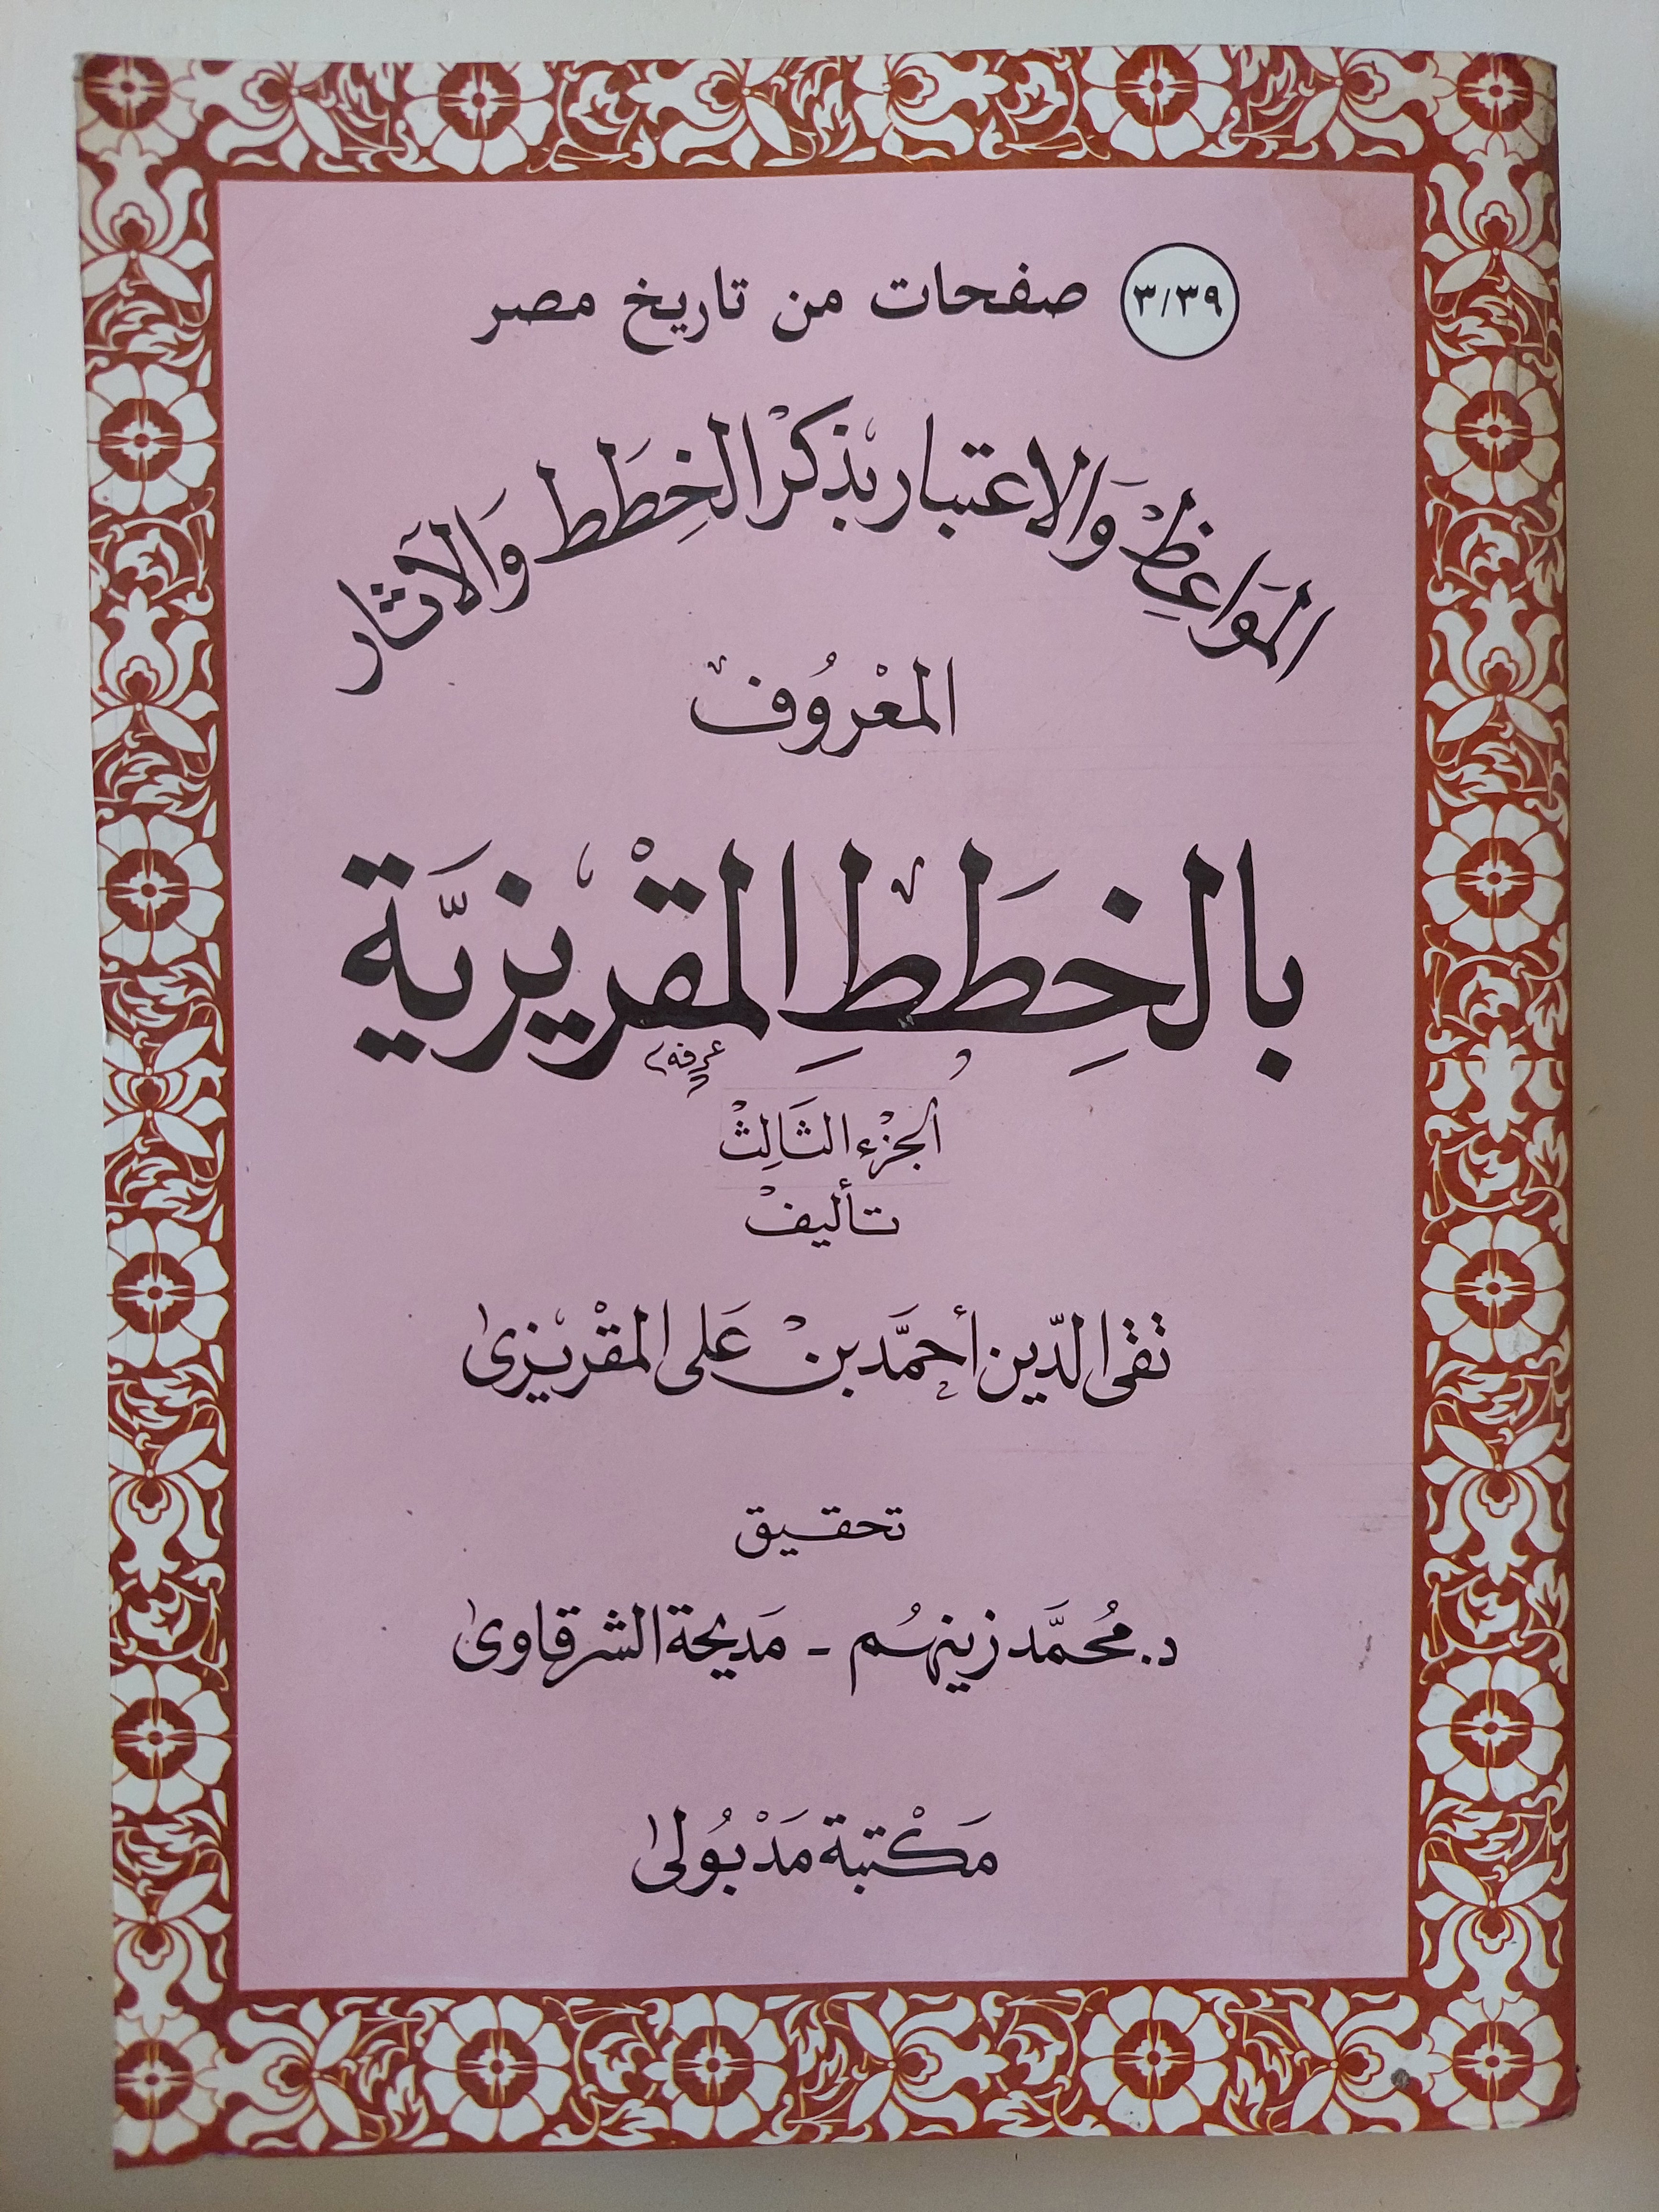 ٣/٣٩ صفحات من تاريخ مصر
المَوَاعِظْ وَالاعتبار بذكْر الخِطَط وَالآثار
المعْرُوف
بالخِطَطِ المقْريزيَّة
عرفه
الجزْء الثَالِثْ
تأليفْ
تقى الدّين أحمَد بنْ عَلى المقْريزى
تحقيق
د. مُحمَّد زينهُم - مَديحة الشرقاوى
مَكْتبة مَدْبُولى